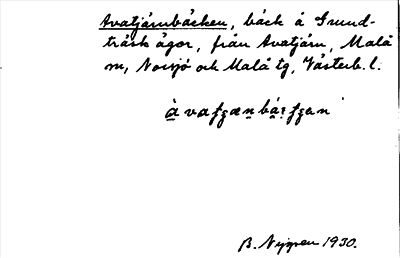 Avatjärnbäcken, bäck å Grund-
träsk ägor, från Avatjärn, Malå
sn, Norsjö och Malå tg, Västerb. l.
B. Nygren 1930.